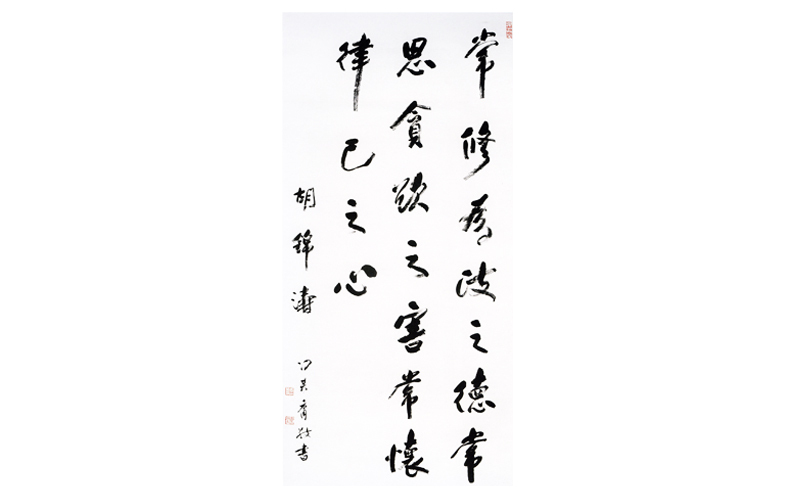 常修為政之德常
思貪欲之害常懷
律己之心
胡錦濤
敬書